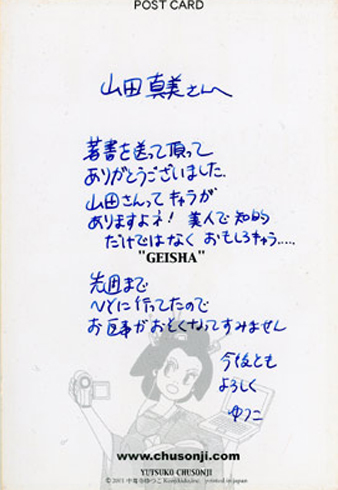 POST CARD
山田真美さんへ
著書を送って頂って
ありがとうございました.
山田さんって キャラが
ありますよネ! 美人で知的
だけではなく おもしろキャラ.....
"GEISHA"
先週まで
NYに行ってたので
お返事がおそくなってすみません
今後とも
よろしく
ゆつこ
www.chusonji.com
YUTSUKO CHUSONJI
© 2001 中尊寺ゆつこ printed in japan